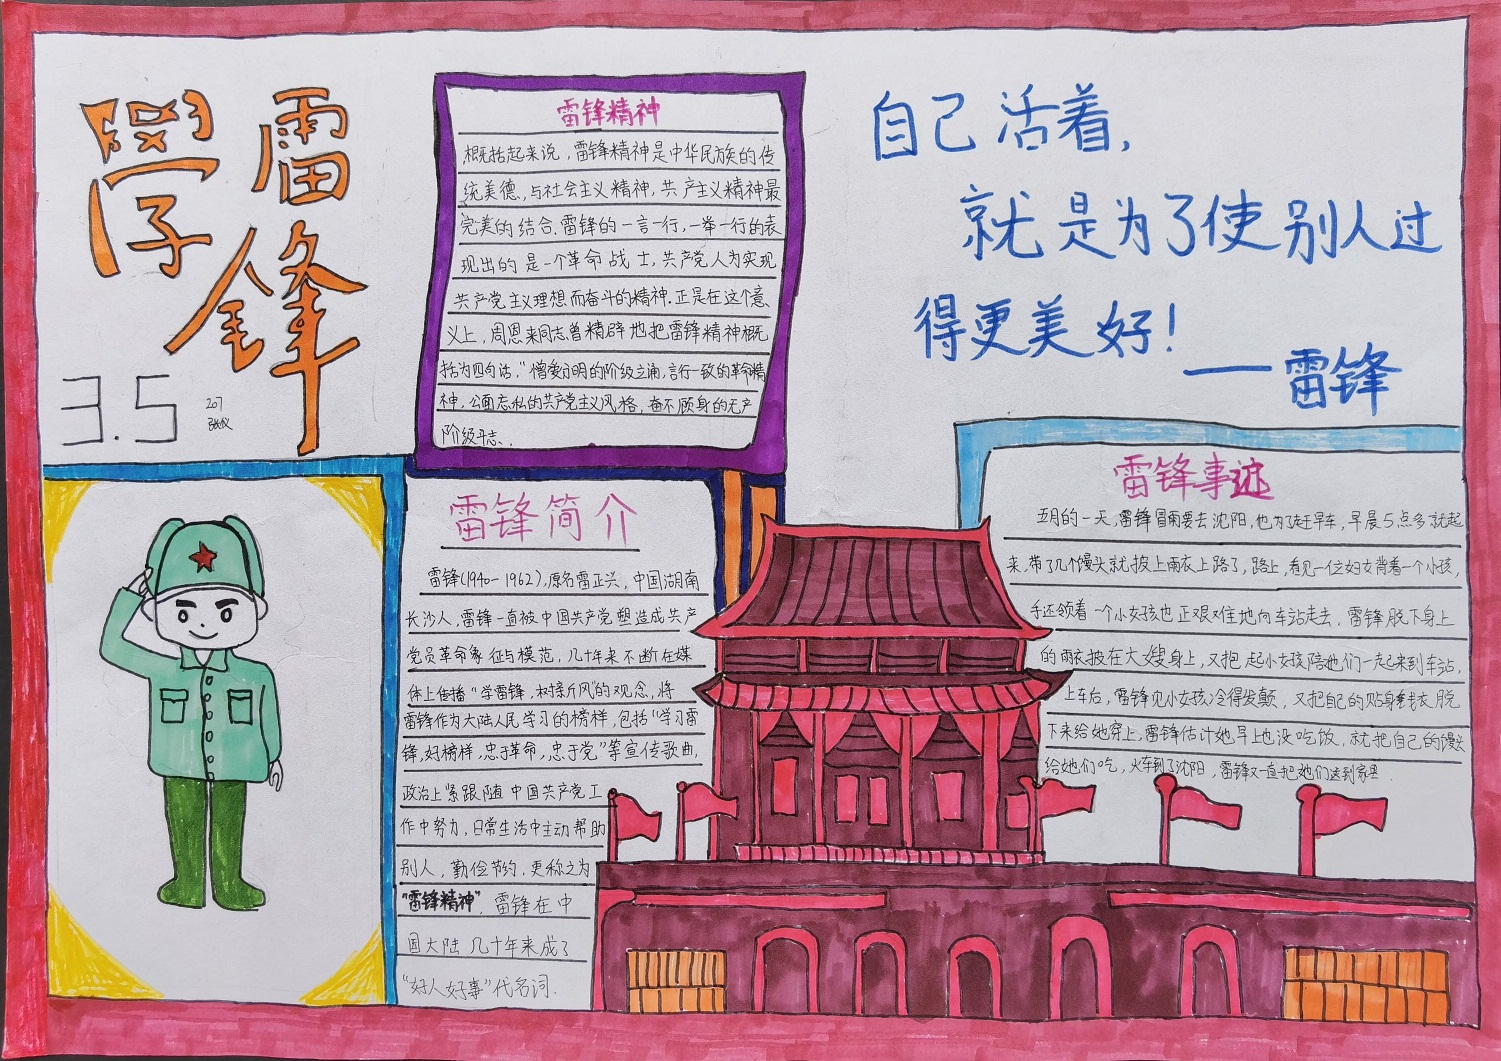 學雷
鋒
3.5
207
雷锋精神
概括起来说，雷锋精神是中华民族的传
统美德，与社会主义精神，共产主义精神最
完美的结合.雷锋的一言一行，一举一行的表
现出的是一个革命战士，共产党人为实现
共产党主义理想而奋斗的精神.正是在这个意
义上，周恩来同志曾精辟地把雷锋精神概
括为四句话，"憎爱分明的阶级立涌，言行一致的革命精
神，公而忘私的共产党主义风格，奋不顾身的无产
阶级斗志.
自己活着，
就是为了使别人过
得更美好！
——雷锋
雷锋简介
雷锋(1940-1962),原名雷正兴，中国湖南
长沙人，雷锋一直被中国共产党塑造成共产
党员革命象征与模范，几十年来不断在媒
体上传播"学雷锋，树新风"的观念，将
雷锋作为大陆人民学习的榜样，包括"学习雷
锋，好榜样，忠于革命，忠于党"等宣传歌曲，
政治上紧跟随中国共产党工
作中努力，日常生活中主动帮助
别人，勤俭节约.更称之为
"雷锋精神"，雷锋在中
国大陆几十年来成了
"好人好事"代名词.
雷锋事迹
五月的一天，雷锋冒雨要去沈阳，他为了赶早车，早晨5点多就起
来，带了几个馒头就披上雨衣上路了，路上，看见一位妇女背着一个小孩，
手还领着一个小女孩也正艰难地向车站走去，雷锋脱下身上
的雨衣披在大嫂身上，又抱起小女孩陪她们一起来到车站，
上车后，雷锋见小女孩冷得发颠，又把自己的贴身线衣脱
下来给她穿上，雷锋估计她早上也没吃饭，就把自己的馒头
给她们吃，火车到了沈阳，雷锋又一直把她们送到家里.